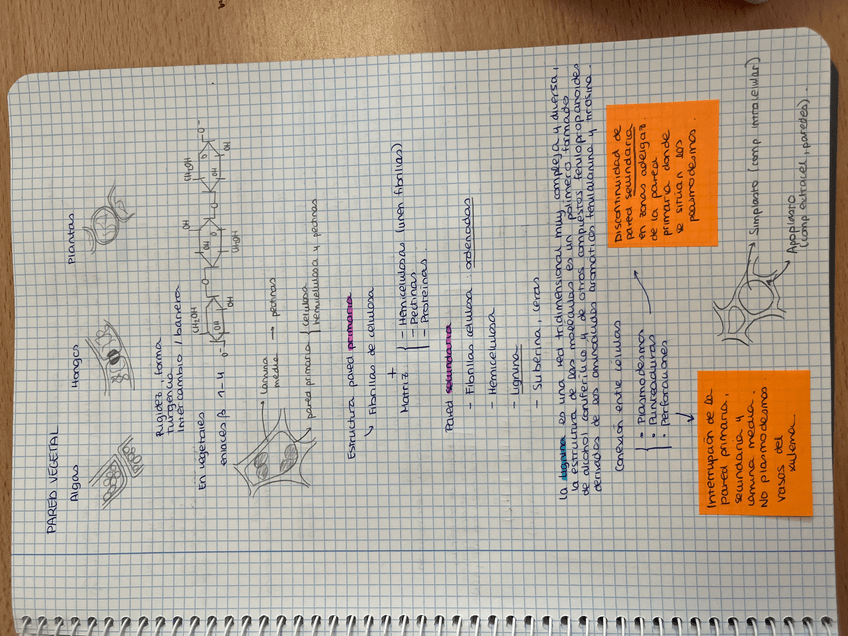 PARED VEGETAL
Algas
Hongos
Plantas
Rigidez, forma
Turgencia
Intercambio / barrera
En vegetales
enlaces β 1-4
CH2OH
OH
O
O⁻
OH
CH2OH
O
OH
CH2OH
O
OH
O⁻
lamina
media → pectinas
pared primaria { celulosa
hemicelulosa y pectinas
Estructura pared primaria
↳ Fibrillas de celulosa
+
Matriz { - Hemicelulosas (unen fibrillas)
- Pectinas
- Proteinas
Pared secundaria
- Fibrillas celulosa: ordenadas
- Hemicelulosa
- Lignina
- Suberina, ceras
La lignina es una red tridimensional muy compleja y diversa,
la estructura de las moleculas es un polimero formado
de alcohol coniferilico y de otros compuestos fenilpropanoides
derivados de los aminoacidos aromaticos fenilalanina y tirosina.
Conexión entre células
- Plasmodesmos
- Punteaduras
- Perforaciones
Discontinuidad de
pared secundaria
en zonas adelgaz.
de la pared
primaria donde
se sitúan los
plasmodesmos.
Interrupción de la
pared primaria,
secundaria y
lamina media.
NO plasmodesmos
vasos del
xilema.
Simplasto (comp intracelular)
Apoplasto
(comp extracel, paredes).